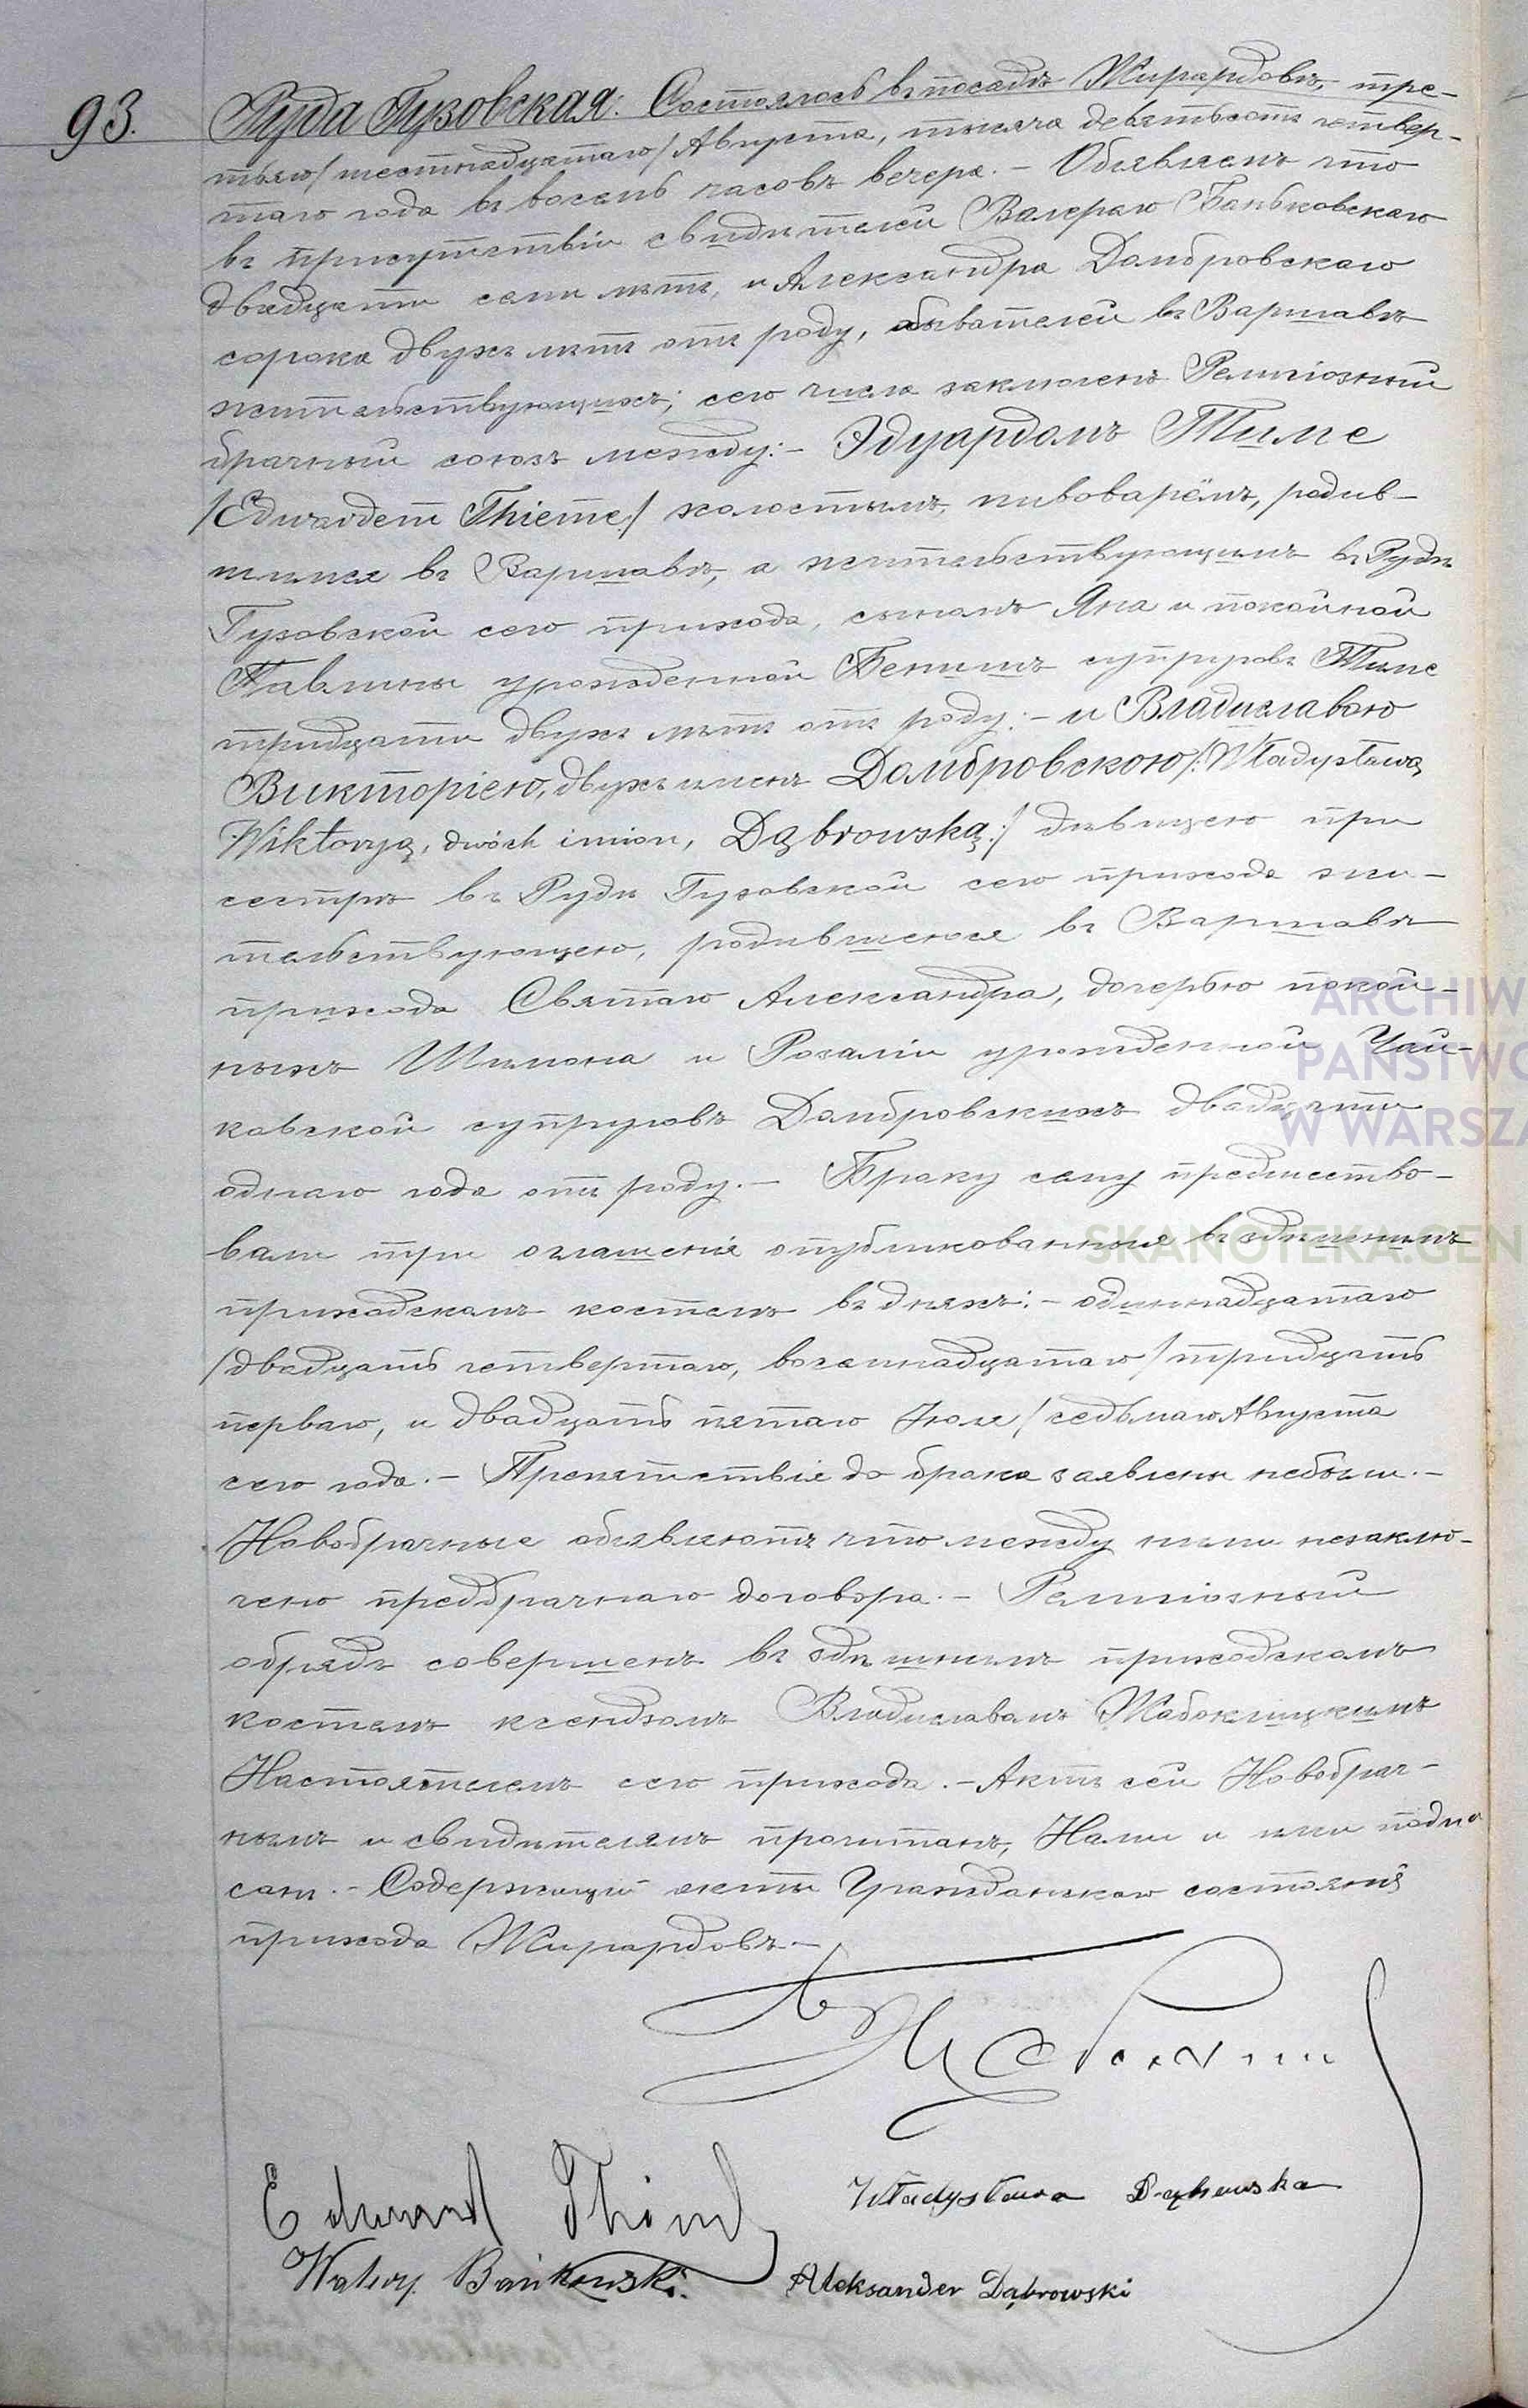 93.
Руда Гузовская. Состоялось въ посадѣ Жирардовѣ, тре-
тьяго /шестнадцатаго/ Августа, тысяча девятьсотъ четвер-
таго года въ восемь часовъ вечера. – Объявляемъ что
въ присутствіи свидѣтелей Валераго Баньковскаго
двадцати семи лѣтъ, и Александра Домбровскаго
сорока двухъ лѣтъ отъ роду, обывателей въ Варшавѣ
жительствующихъ; сего числа заключенъ Религіозный
брачный союзъ между: – Эдуардомъ Тиме
/Edwardem Thieme/ холостымъ, пивоварёмъ, родив-
шимся въ Варшавѣ, а жительствующимъ въ Рудѣ
Гузовской сего прихода, сыномъ Яна и покойной
Павлины урожденной Бенишъ супруговъ Тиме
тридцати двухъ лѣтъ отъ роду: – и Владиславою
Викторіею, двухъ именъ Домбровскою /:Władysławą
Wiktoryą, dwóch imion, Dąbrowską:/ дѣвицею при
сестрѣ въ Рудѣ Гузовской сего прихода жи-
тельствующею, родившеюся въ Варшавѣ
прихода Святаго Александра, дочерью покой-
ныхъ Шимона и Розаліи урожденной Чай-
ковской супруговъ Домбровскихъ двадцати
одного года отъ роду. – Браку сему предшество-
вали три оглашенія опубликованныя въ здѣшнемъ
приходскомъ костелѣ въ дняхъ: – одиннадцатаго
/двадцать четвертаго, восемнадцатаго /тридцать
перваго, и двадцать пятаго Іюля /седьмаго Августа
сего года. – Препятствіе до брака заявлены небыли. –
Новобрачные объявляютъ что между ними незаклю-
чено предбрачнаго договора. – Религіозный
обрядъ совершенъ въ здѣшнимъ приходскомъ
костелѣ ксендзомъ Владиславомъ Жабоклицкимъ
Настоятелемъ сего прихода. – Актъ сей Новобрач-
нымъ и свидѣтелямъ прочитанъ, Нами и ими подпи
санъ. – Содержащій акты Гражданскаго состоянія
прихода Жирардовъ. –
Edward Thieme Władysława Dąbrowska
Walery Bańkowski. Aleksander Dąbrowski
ARCHIW
PAŃSTWO
W WARSZA
SKANOTEKA.GEN